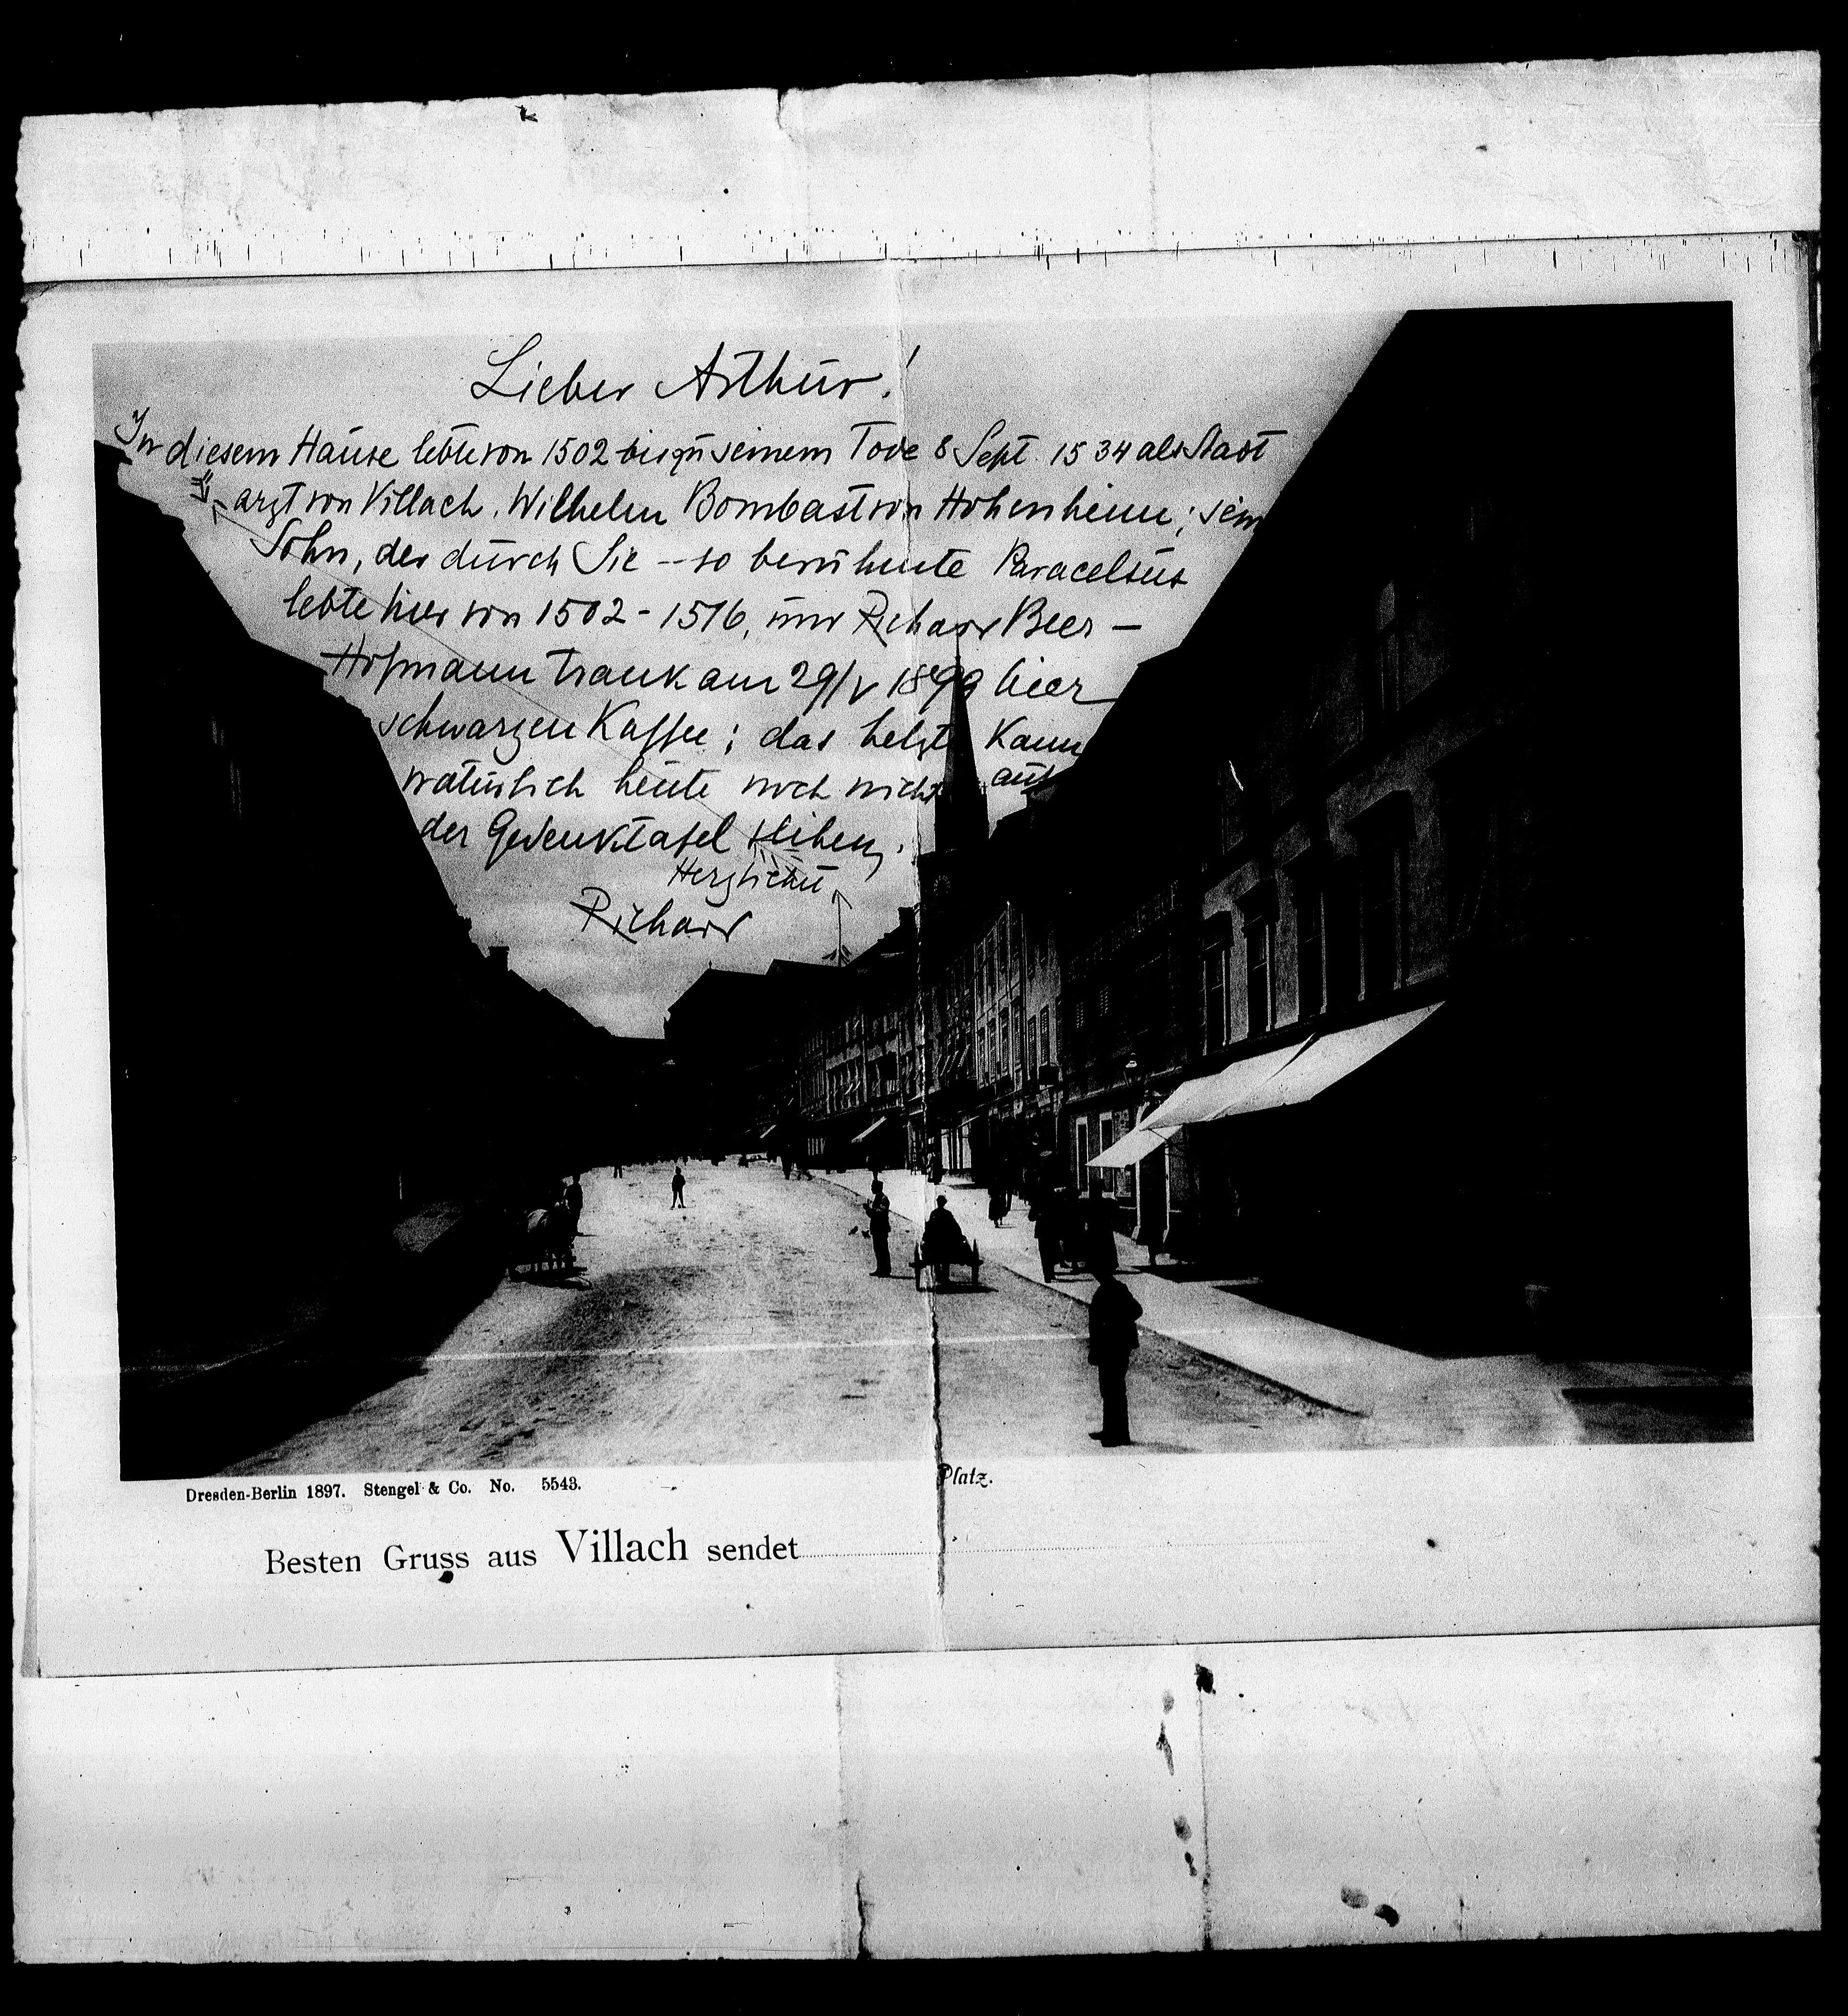 Lieber Arthur!
In diesem Hause lebte von 1502 bis zu seinem Tode 8 Sept. 1534 als Stadt
arzt von Villach, Wilhelm Bombast von Hohenheim; sein
Sohn, der durch Sie – so berühmte Paracelsus
lebte hier von 1502 - 1516, und Richard Beer –
Hofmann trank am 29/V 1899 hier
schwarzen Kaffee; das letzte kann
natürlich heute noch nicht auf
der Gedenktafel stehen.
Herzlichst
Richard
Dresden-Berlin 1897. Stengel & Co. No. 5543.
Platz.
Besten Gruss aus Villach sendet